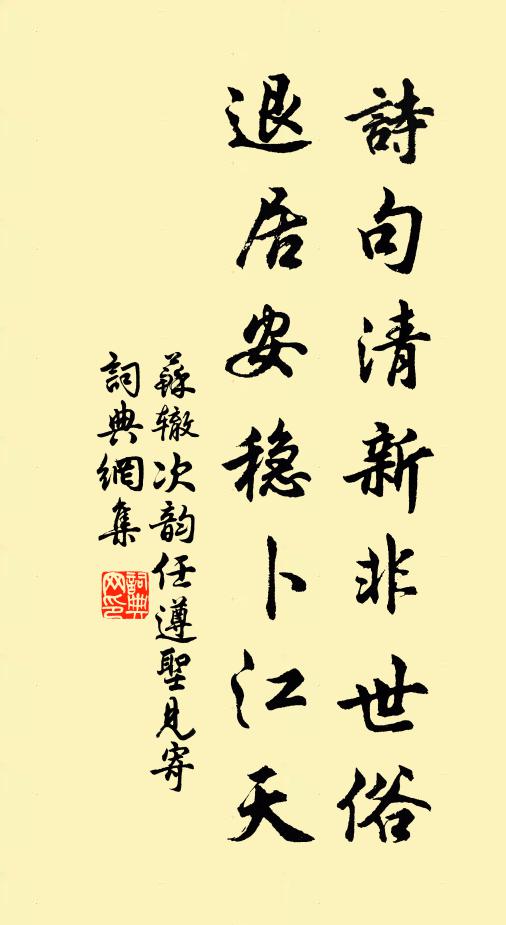 詩句清新非世俗
退居安穏卜江天
蘇辙次韵任遵聖見寄
詞典網集
詞典网印